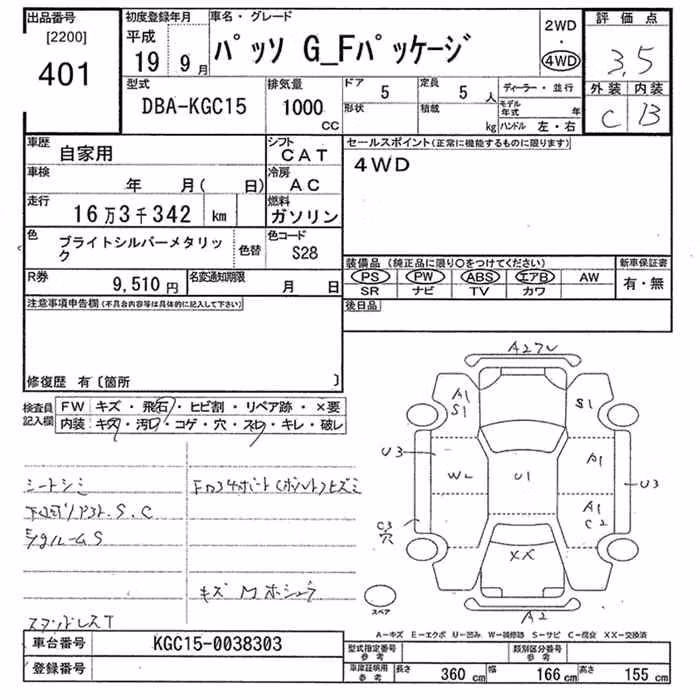 出品番号
[2200]
401
初度登録年月
平成
19 9月
車名・グレード
パッソ G_Fパッケージ
2WD
・
4WD
評価点
3.5
外装 内装
C B
型式
DBA-KGC15
排気量
1000
CC
ドア 5
形状
定員 5 人
積載 kg
ディーラー・並行
モデル年式 年
ハンドル 左・右
車歴
自家用
シフト
CAT
車検
年 月( 日)
冷房
AC
走行
16万3千342 km
燃料
ガソリン
色
ブライトシルバーメタリック
色替
色コード
S28
R券
9,510円
名変通知期限
月 日
セールスポイント(正常に機能するものに限ります)
4WD
装備品(純正品に限り〇をつけてください)
PS PW ABS エアB AW
SR ナビ TV カワ
新車保証書
有・無
後日品
注意事項申告欄(不具合内容等は具体的に記入して下さい)
修復歴 有〔箇所 〕
検査員記入欄
FW キズ・飛石・ヒビ割・リペア跡・×要
内装 キズ・汚れ・コゲ・穴・スレ・キレ・破レ
シートシミ
S.C
ルームS
スタッドレスT
キズ M
A1
S1
S1
U3
W2
U1
A1
U3
A1
C2
C3
穴
XX
A2
スペア
A-キズ E-エクボ U-凹み W-補修跡 S-サビ C-腐食 XX-交換済
車台番号
KGC15-0038303
登録番号
型式指定番号
参考
類別区分番号
参考
車庫証明用
参考
長さ 360 cm 幅 166 cm 高さ 155 cm